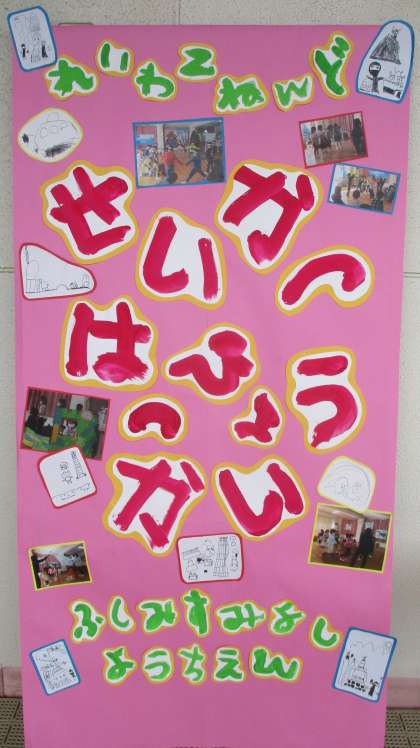 れいわ2ねんど
せいかつ
はっぴょう
かい
ふしみすみよし
ようちえん